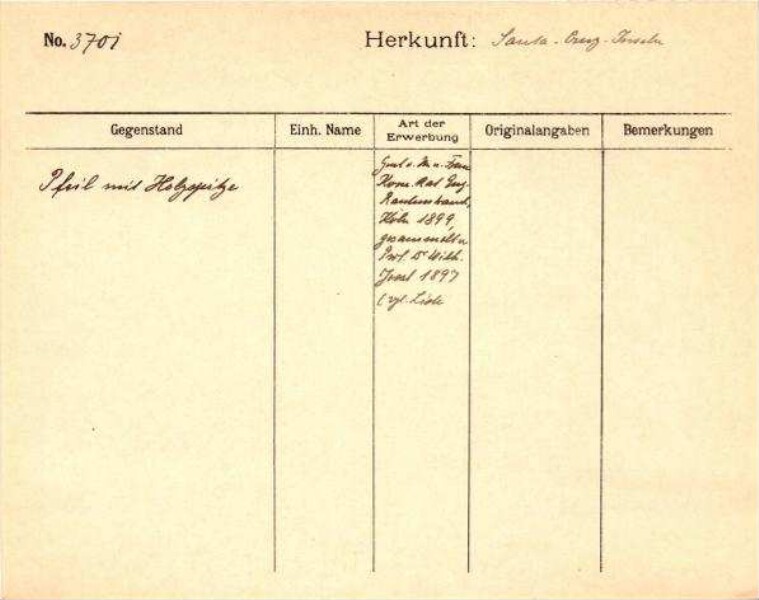 No. 3701
Herkunft: Santa-Cruz-Inseln
Gegenstand
Einh. Name
Art der
Erwerbung
Originalangaben
Bemerkungen
Pfeil mit Holzspitze
Gesch. v. Frau
Kom. Rat Eug.
Rautenstrauch,
Köln 1899,
gesammelt v.
Prof. Dr Wilh.
Joest 1897
(vgl. Liste